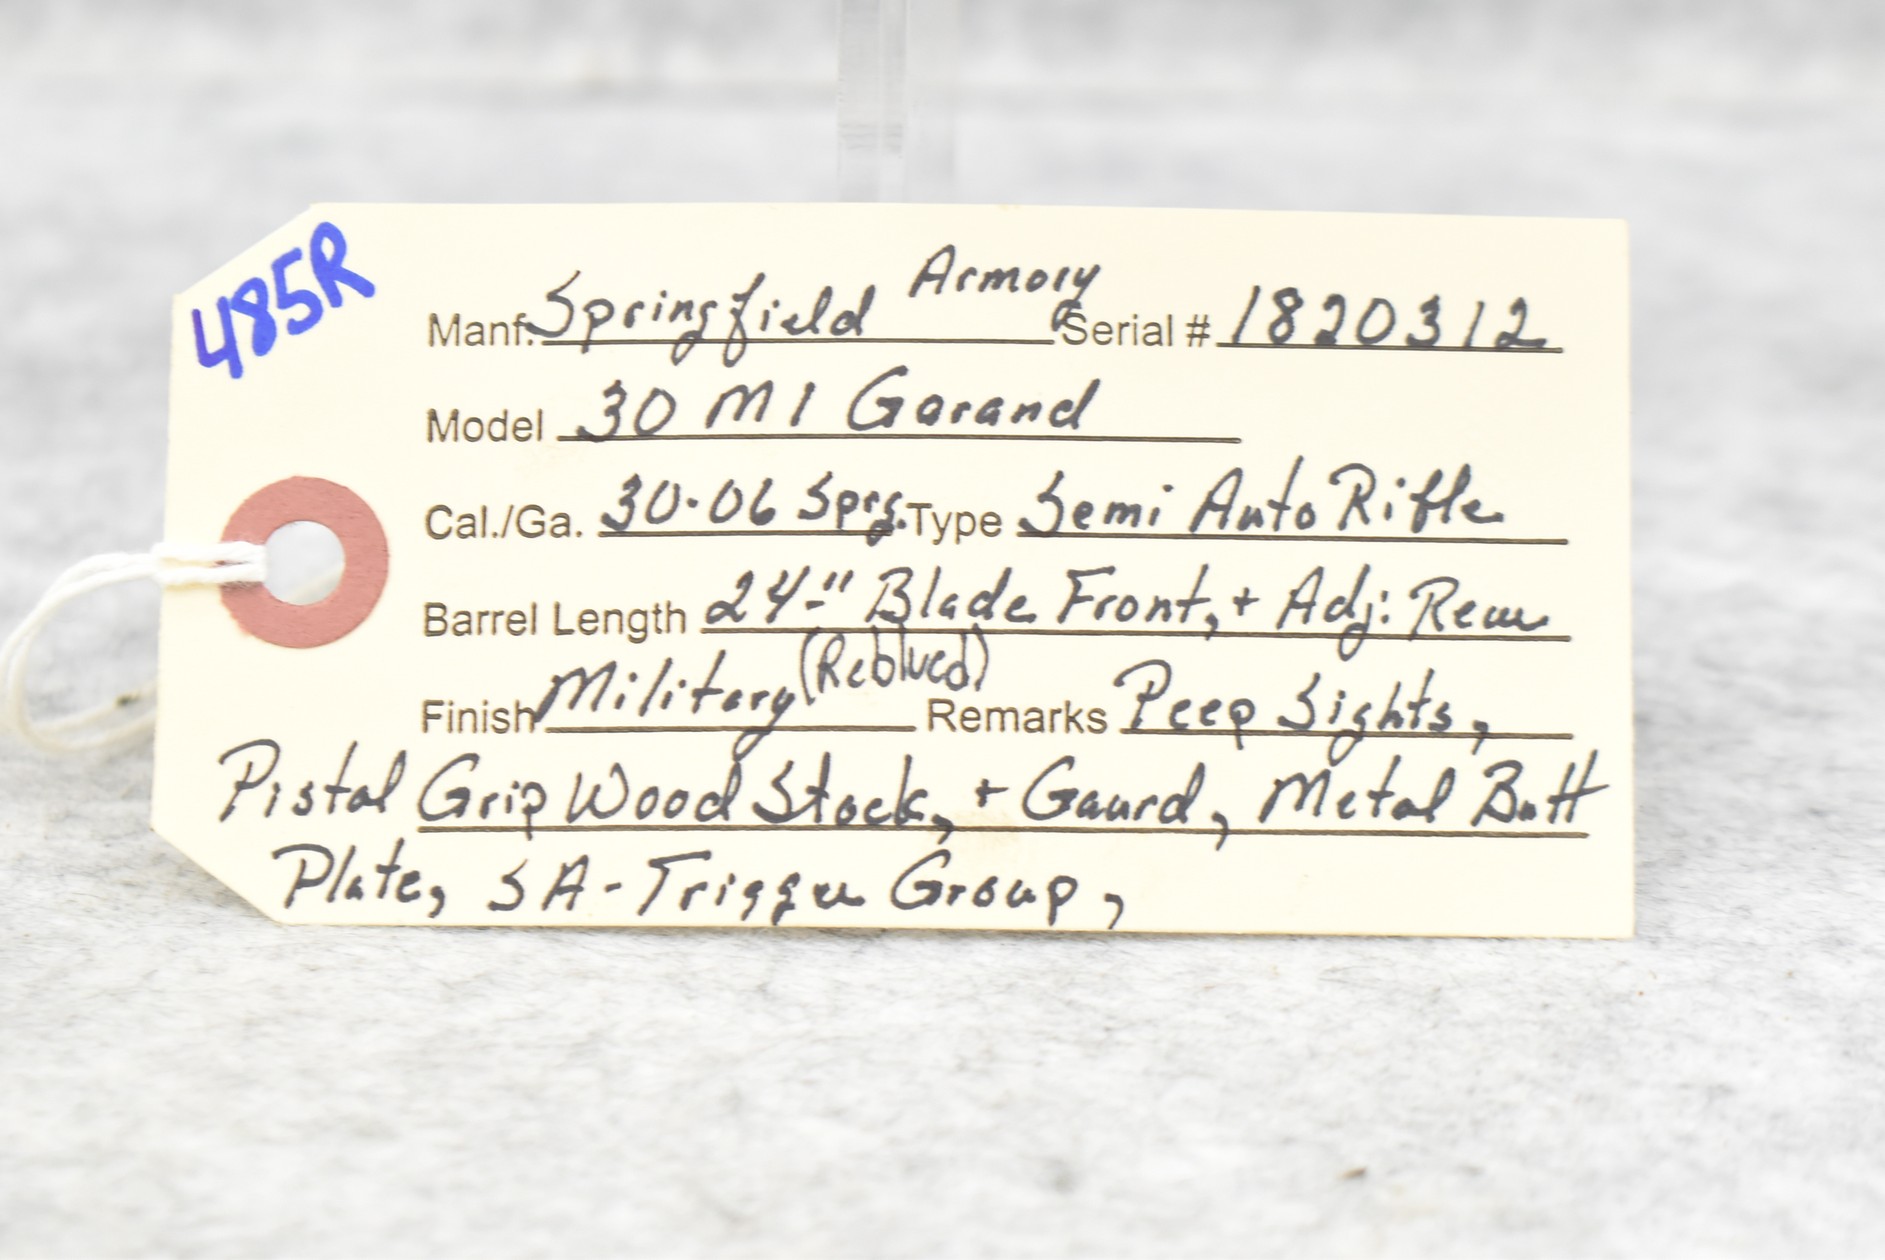 485R
Manf. Springfield Armory Serial # 1820312
Model 30 M1 Garand
Cal./Ga. 30-06 Sprg. Type Semi Auto Rifle
Barrel Length 24-" Blade Front, + Adj: Rear
Finish Military (Reblued) Remarks Peep Sights,
Pistol Grip Wood Stock, + Gaurd, Metal Butt
Plate, SA-Trigger Group,